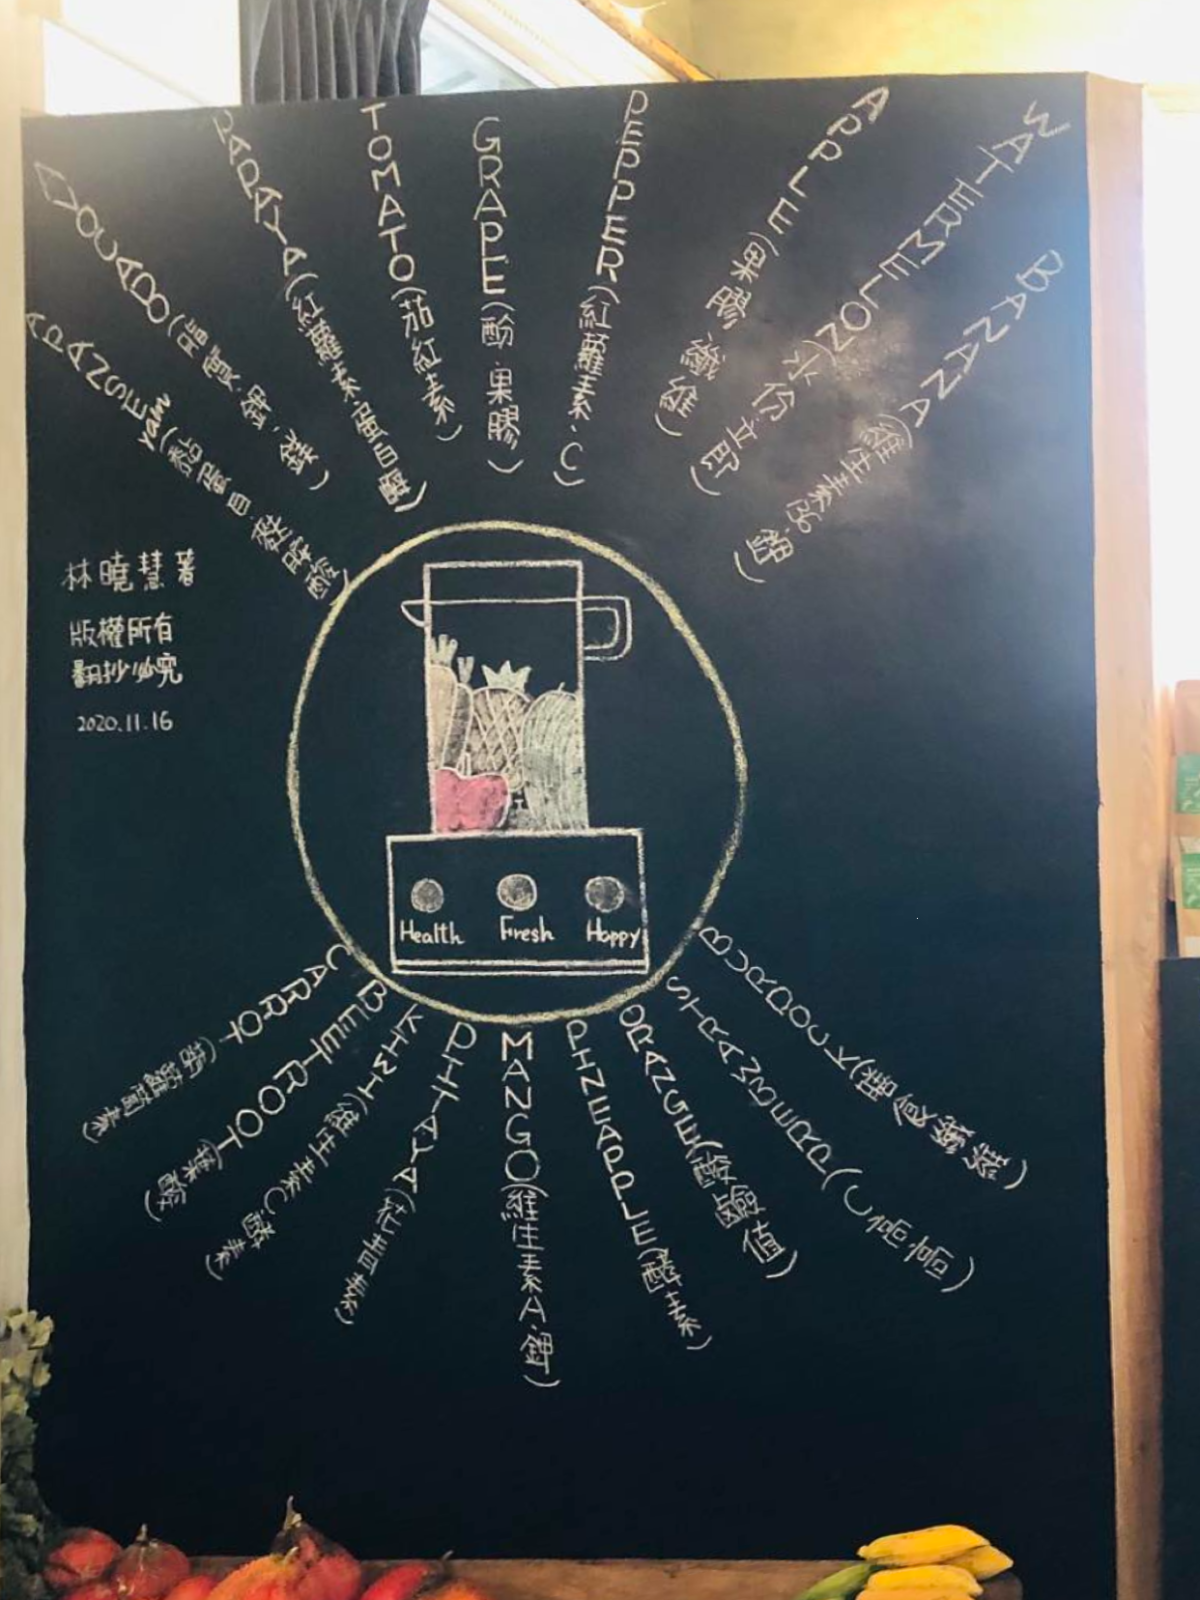 APANSE yam (黏蛋白.
AVOCADO (脂質.鉀.鎂)
PAPAYA (紅蘿素.蛋白酶)
TOMATO (茄紅素)
GRAPE (酚.果膠)
PEPPER (紅蘿素.C)
APPLE (果膠.纖維)
WATERMELON (水份.
BANANA (維生素B6.鉀)
林曉慧著
版權所有
翻抄必究
2020.11.16
Health Fresh Happy
CARROT (胡蘿蔔素)
BEETROOT (葉酸)
KIWI (維生素C.酵素)
PITAYA (花青素)
MANGO (維生素A.鉀)
PINEAPPLE (酵素)
ORANGE (酸鹼值)
STRAWBERRP (C高高)
BURDOCK (膳食纖維)